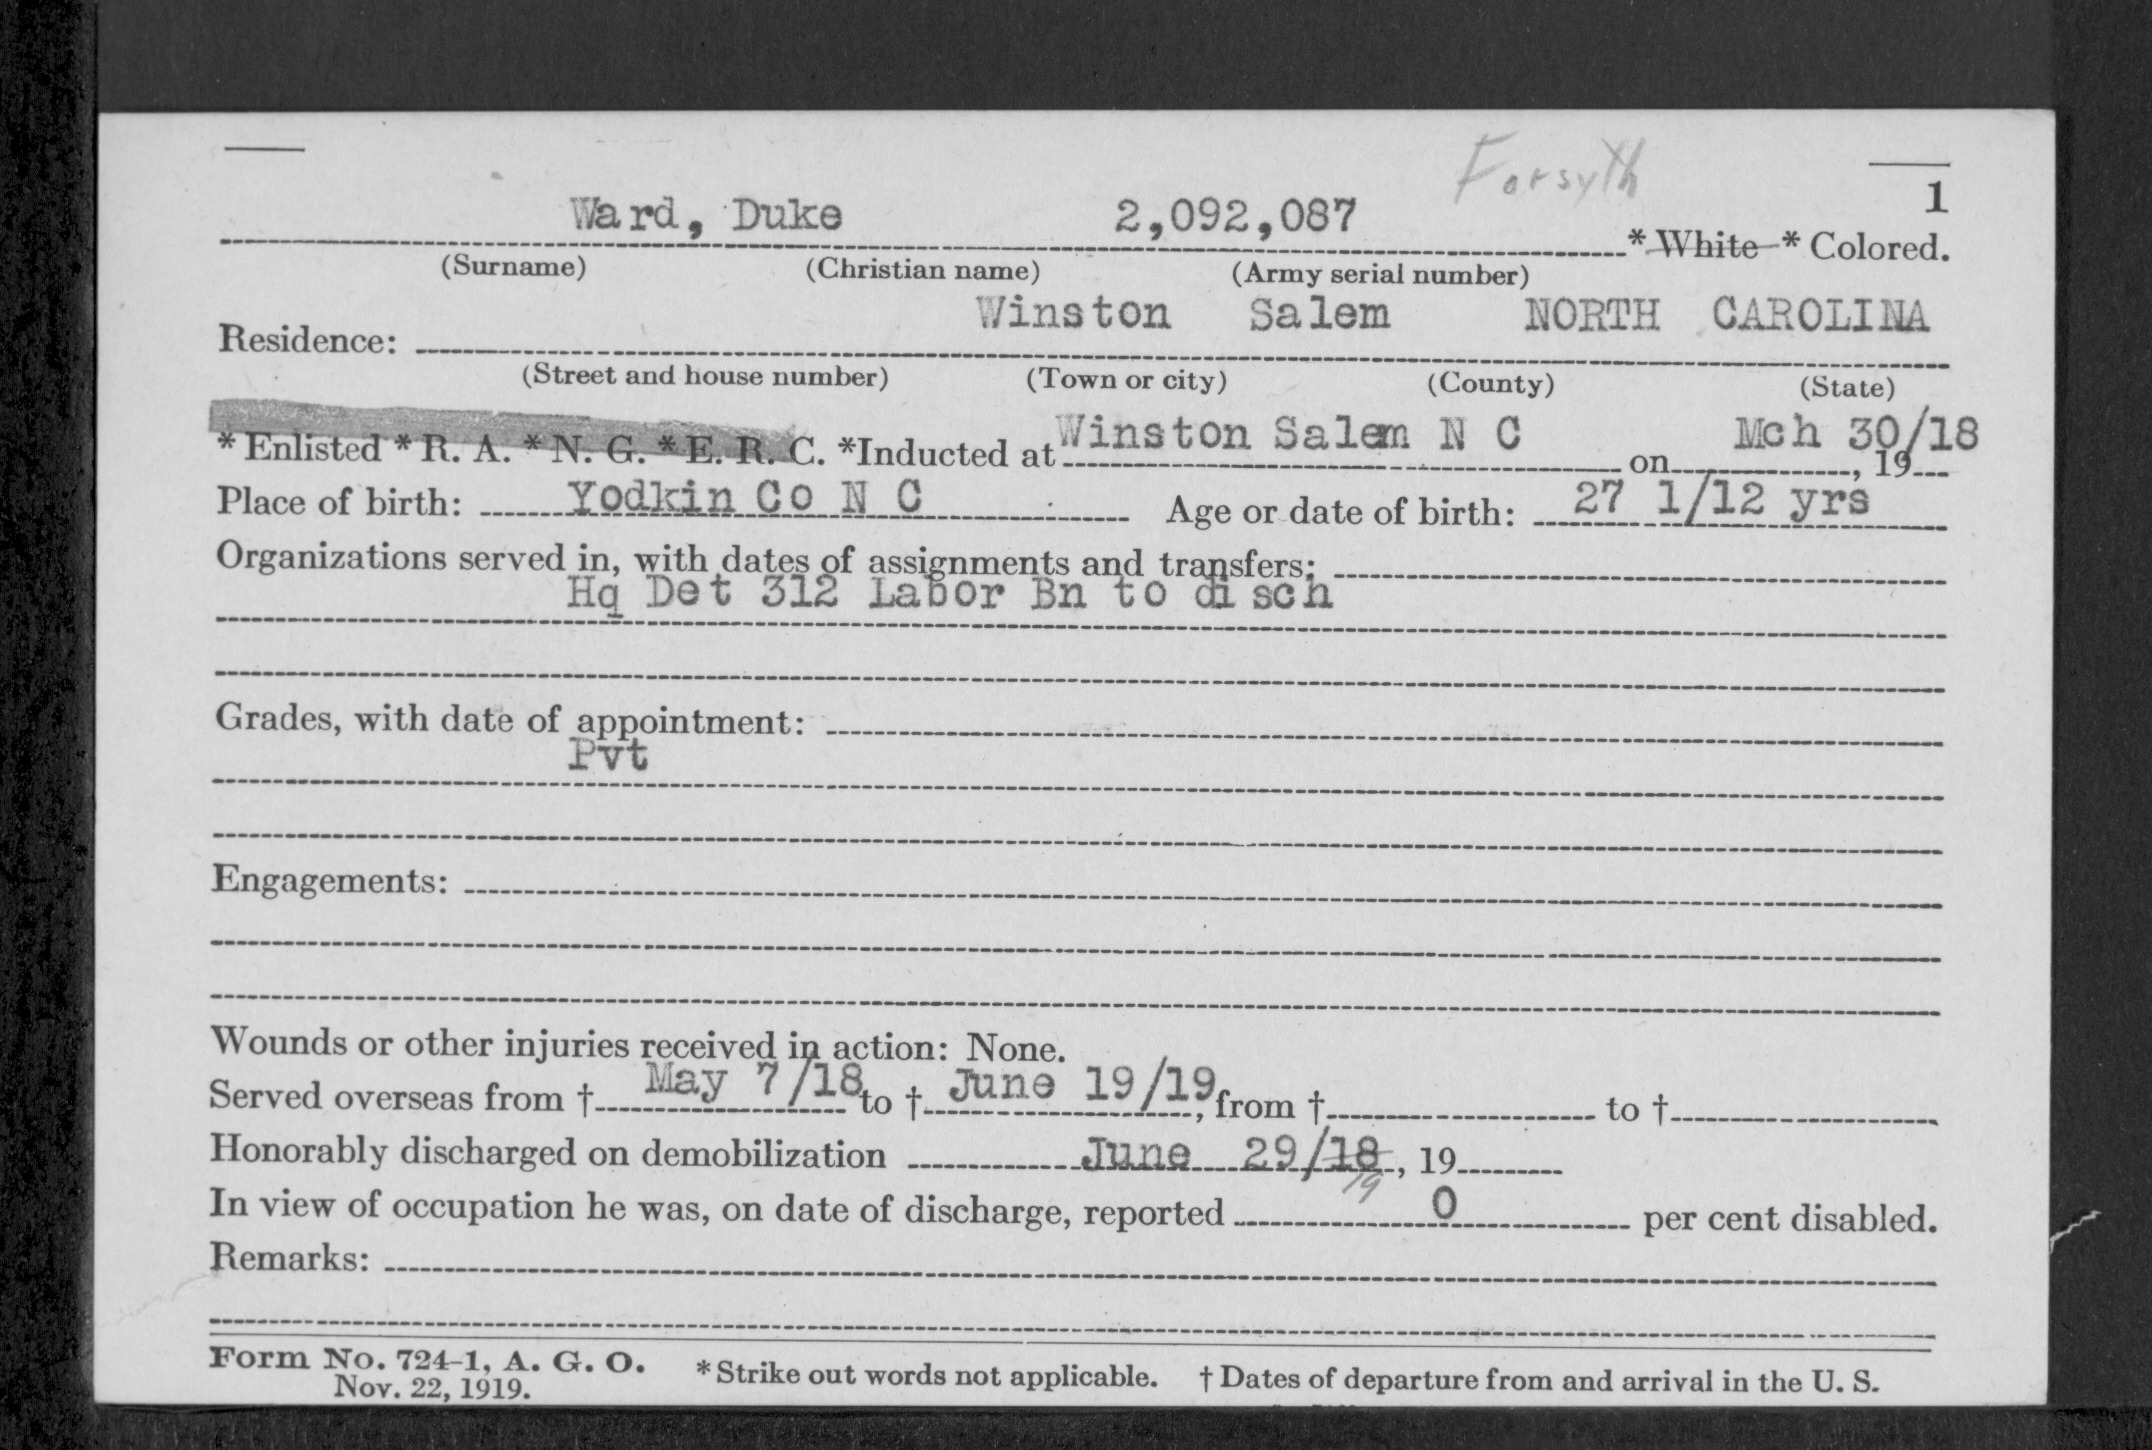 Forsyth
1
Ward, Duke 2,092,087 * White * Colored.
(Surname) (Christian name) (Army serial number)
Residence: Winston Salem NORTH CAROLINA
(Street and house number) (Town or city) (County) (State)
* Enlisted * R. A. * N. G. * E. R. C. *Inducted at Winston Salem N C on Mch 30/18, 19
Place of birth: Yodkin Co N C Age or date of birth: 27 1/12 yrs
Organizations served in, with dates of assignments and transfers:
Hq Det 312 Labor Bn to disch
Grades, with date of appointment:
Pvt
Engagements:
Wounds or other injuries received in action: None.
Served overseas from † May 7/18 to † June 19/19, from † to †
Honorably discharged on demobilization June 29/18, 19
19
In view of occupation he was, on date of discharge, reported 0 per cent disabled.
Remarks:
Form No. 724-1, A. G. O. * Strike out words not applicable. † Dates of departure from and arrival in the U. S.
Nov. 22, 1919.